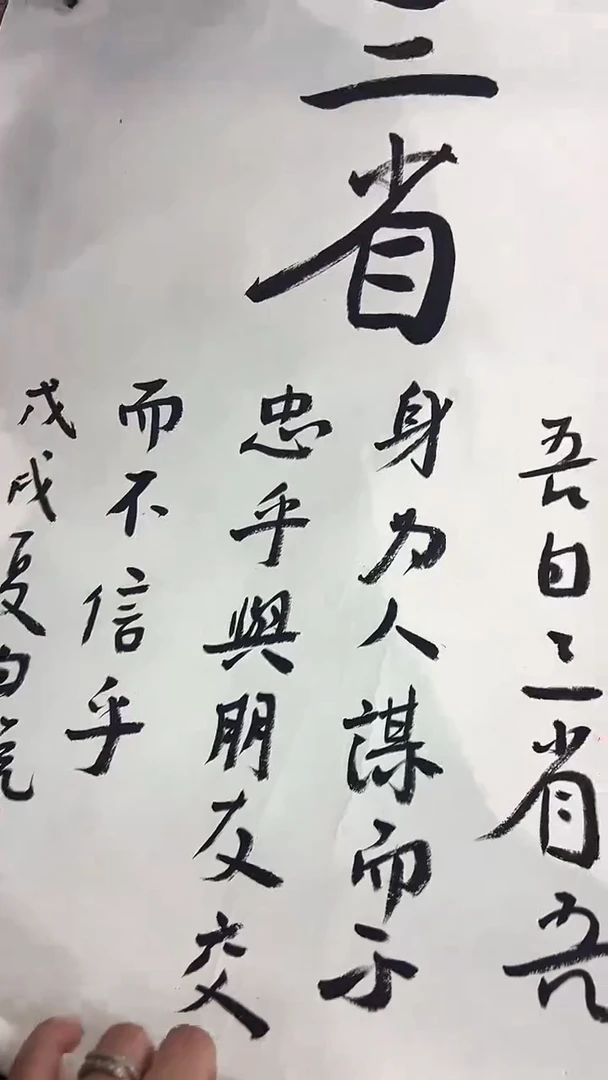 三省
吾日三省吾
身为人謀而不
忠乎與朋友交
而不信乎
戊戌夏